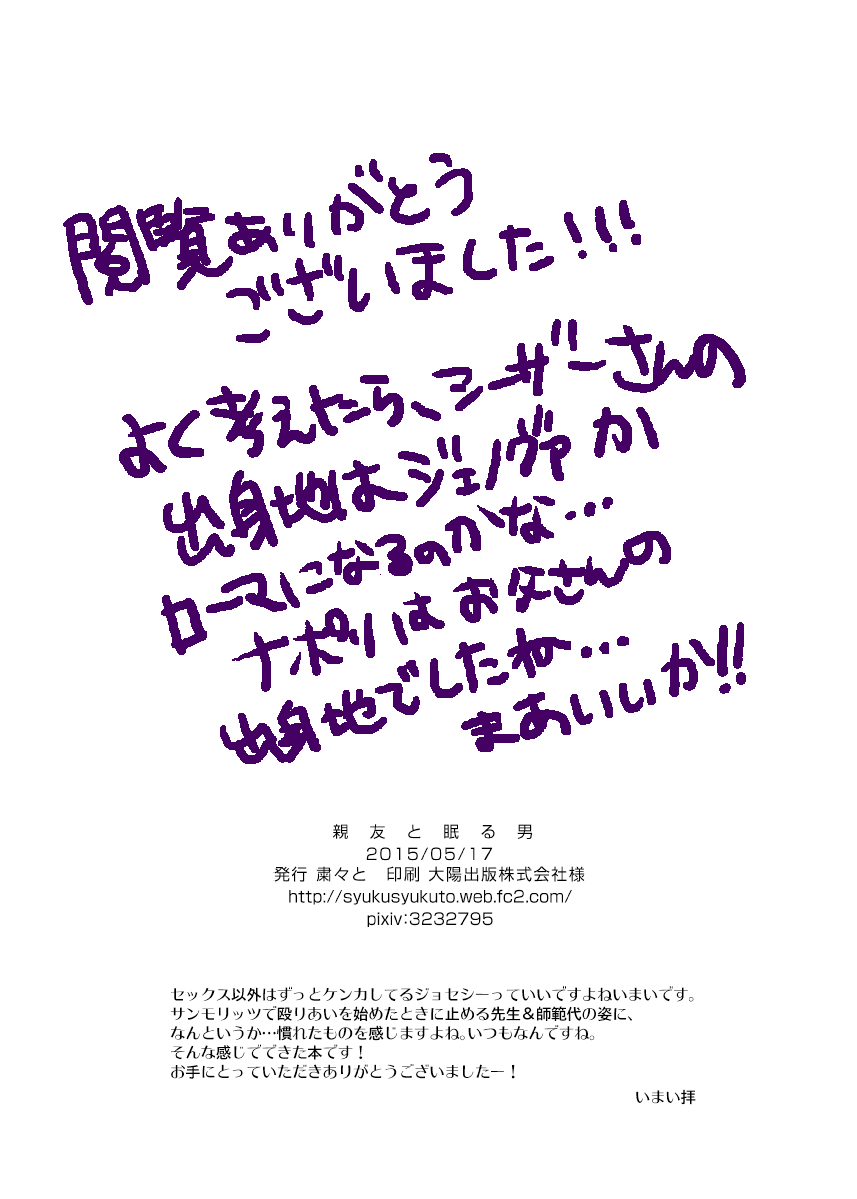 閲覧ありがとう
ございました!!!
よく考えたら、シーザーさんの
出身地はジェノヴァか
ローマになるのかな…
ナポリはお父さんの
出身地でしたね…
まあいいか!!
親友と眠る男
2015/05/17
発行 粛々と　印刷 大陽出版株式会社様
http://syukusyukuto.web.fc2.com/
pixiv:3232795
セックス以外はずっとケンカしてるジョセシーっていいですよねいまいです。
サンモリッツで殴りあいを始めたときに止める先生＆師範代の姿に、
なんというか…慣れたものを感じますよね。いつもなんですね。
そんな感じでできた本です！
お手にとっていただきありがとうございましたー！
いまい拝